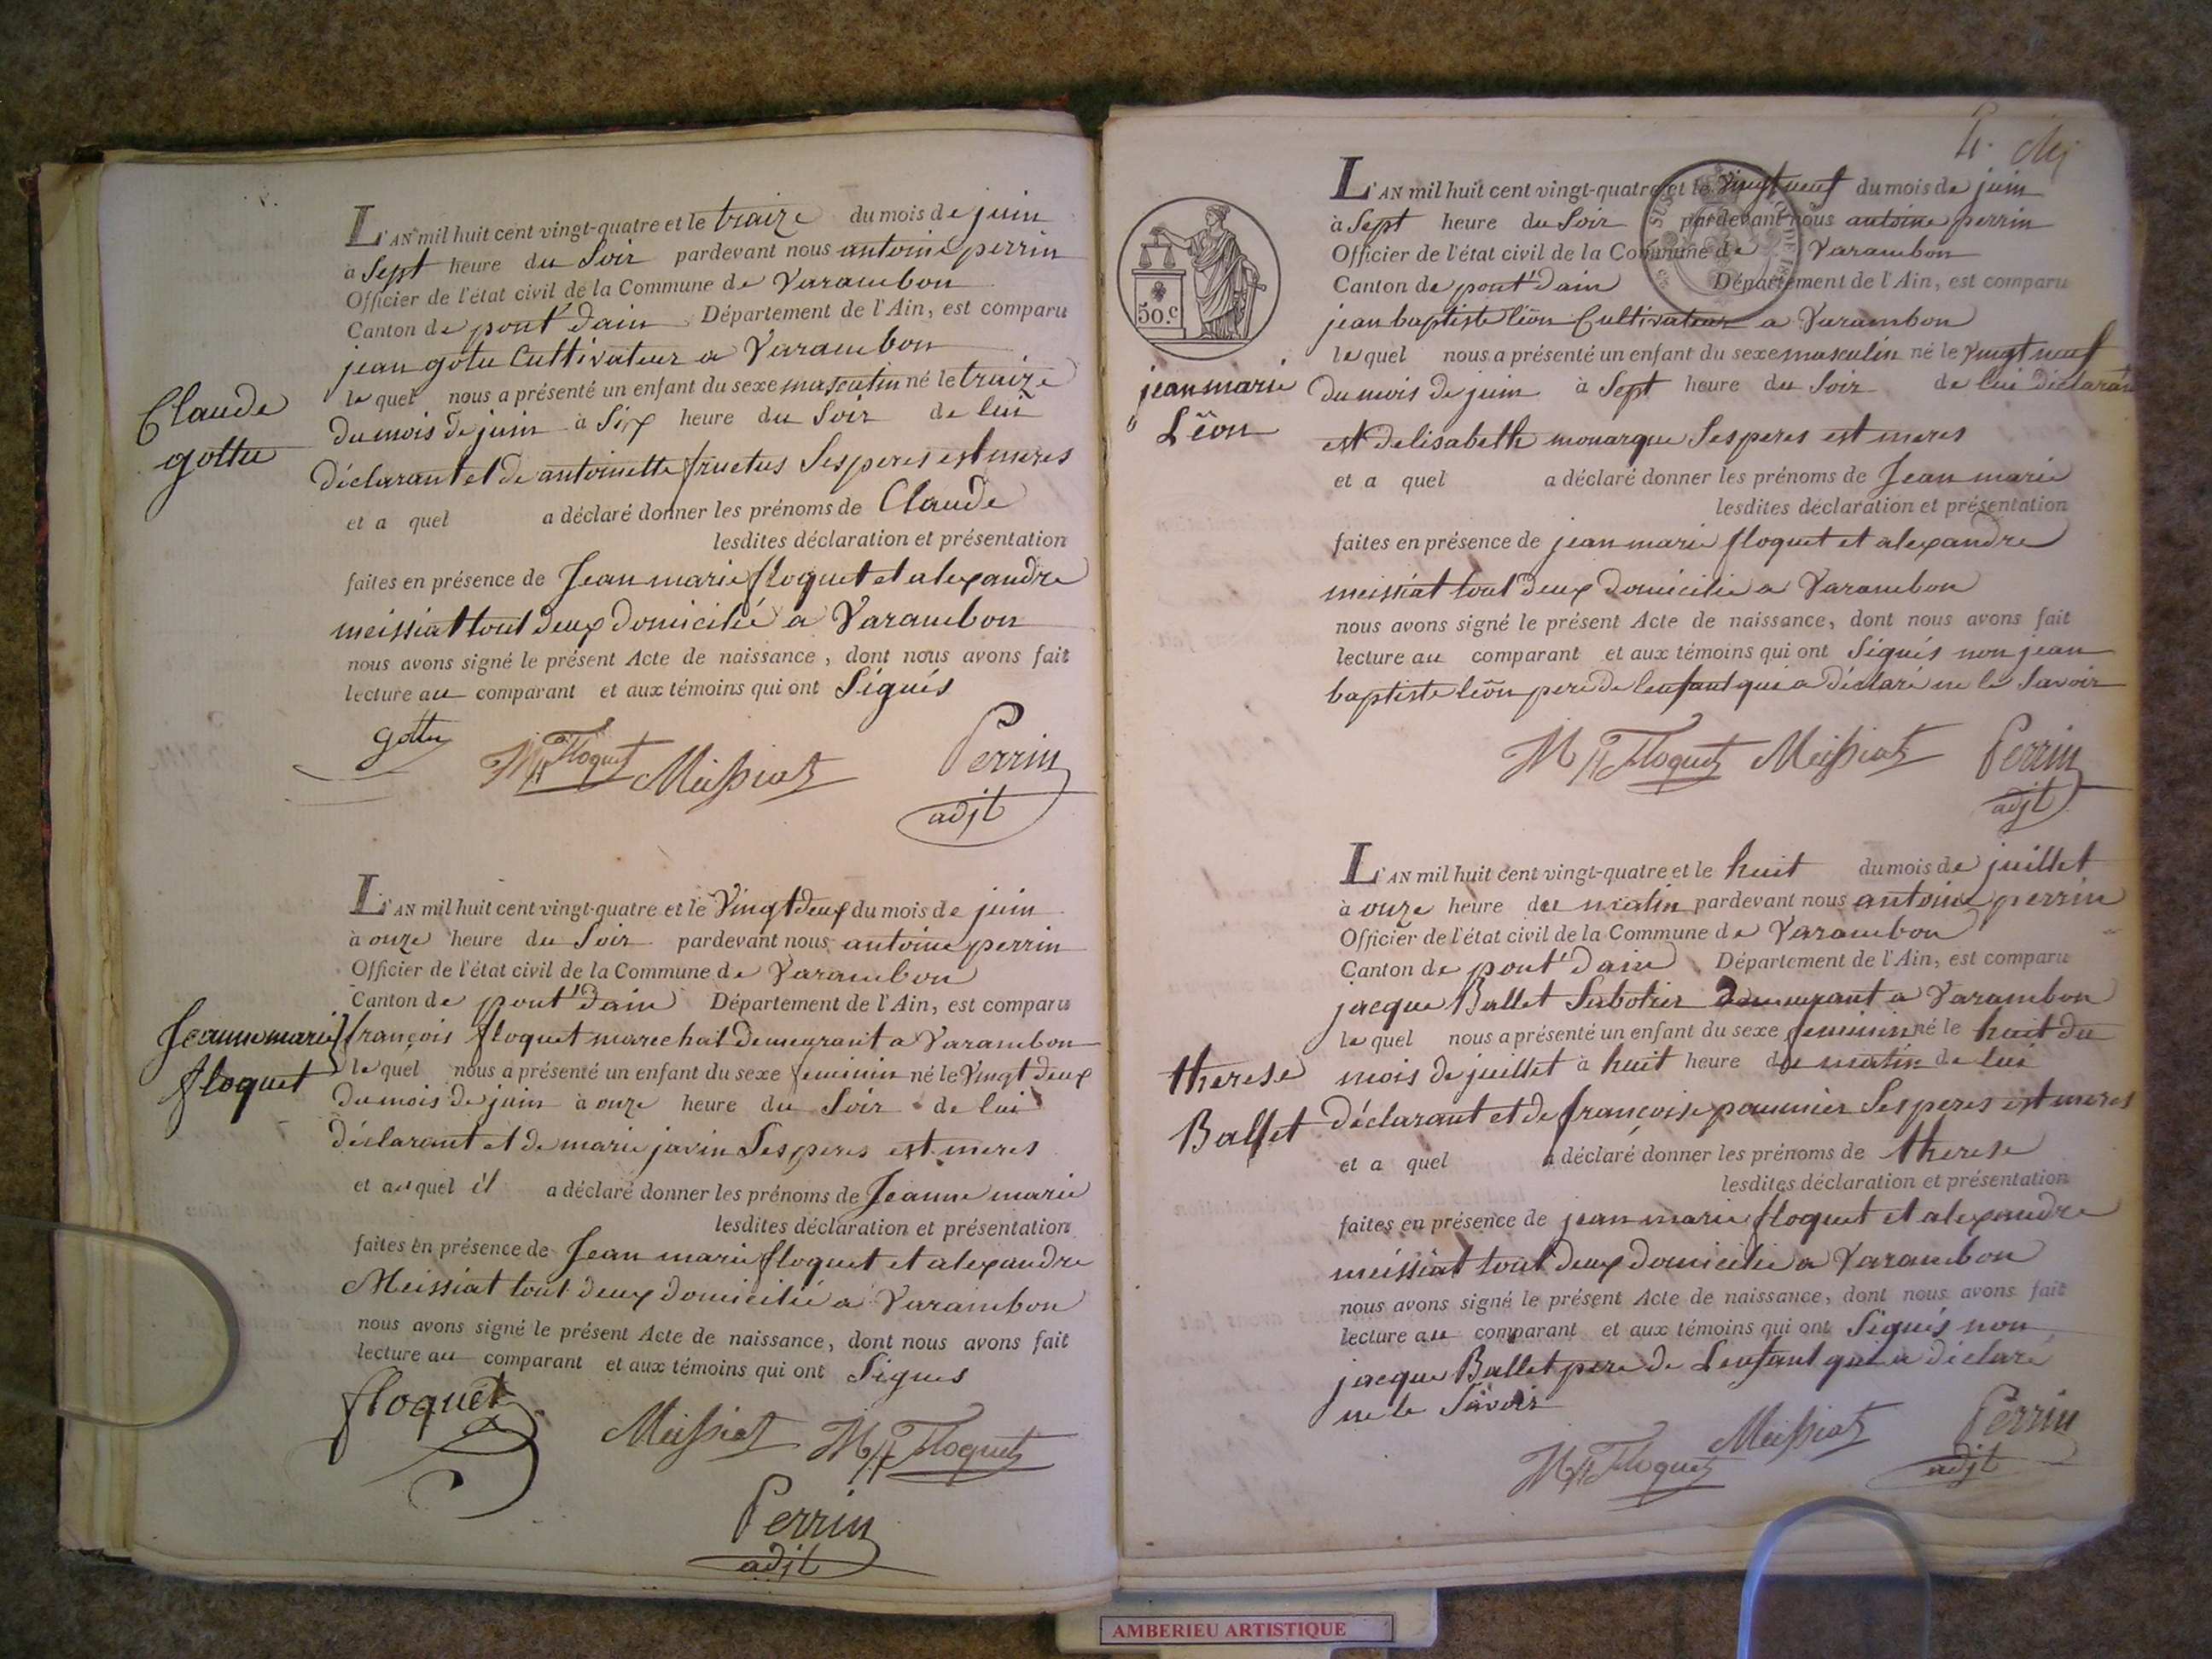 L'AN mil huit cent vingt-quatre et le traize du mois de juin
à Sept heure du Soir pardevant nous antoine perrin
Officier de l'état civil de la Commune de Varambon
Canton de pont d'ain Département de l'Ain, est comparu
jean gotu Cultivateur a Varambon
le quel nous a présenté un enfant du sexe masculin né le traize
du mois de juin à Six heure du Soir de lui
déclarant et de antoinette fructus Ses peres est meres
et a quel a déclaré donner les prénoms de Claude
lesdites déclaration et présentation
faites en présence de Jean marie floquet et alexandre
meissiat tout deux domicilié a Varambon
nous avons signé le présent Acte de naissance, dont nous avons fait
lecture au comparant et aux témoins qui ont Signés
Claude
gottu
gottu
Floquet Meissiat Perrin
adjt
L'AN mil huit cent vingt-quatre et le Vingt deux du mois de juin
à onze heure du Soir pardevant nous antoine perrin
Officier de l'état civil de la Commune de Varambon
Canton de pont d'ain Département de l'Ain, est comparu
françois floquet marechal demeurant a Varambon
le quel nous a présenté un enfant du sexe feminin né le Vingt deux
du mois de juin à onze heure du Soir de lui
déclarant et de marie javin Ses peres est meres
et au quel il a déclaré donner les prénoms de Jeanne marie
lesdites déclaration et présentation
faites en présence de Jean marie floquet et alexandre
Meissiat tout deux domicilié a Varambon
nous avons signé le présent Acte de naissance, dont nous avons fait
lecture au comparant et aux témoins qui ont Signes
Jeanne marie
floquet
floquet
Meissiat Floquet
Perrin
adjt
L'AN mil huit cent vingt-quatre et le Vingt neuf du mois de juin
à Sept heure du Soir pardevant nous antoine perrin
Officier de l'état civil de la Commune de Varambon
Canton de pont d'ain Département de l'Ain, est comparu
jean baptiste léon Cultivateur a Varambon
le quel nous a présenté un enfant du sexe masculin né le vingt neuf
du mois de juin à Sept heure du Soir de lui déclarant
est delisabeth monarque Ses peres est meres
et a quel a déclaré donner les prénoms de Jean marie
lesdites déclaration et présentation
faites en présence de jean marie floquet et alexandre
meissiat tout deux domicilié a Varambon
nous avons signé le présent Acte de naissance, dont nous avons fait
lecture au comparant et aux témoins qui ont Signés non jean
baptiste léon pere de lenfant qui a déclaré ne le Savoir
50.c
jean marie
Léon
Floquet Meissiat Perrin
adjt
L'AN mil huit cent vingt-quatre et le huit du mois de juillet
à onze heure du matin pardevant nous antoine perrin
Officier de l'état civil de la Commune de Varambon
Canton de pont d'ain Département de l'Ain, est comparu
jacque Ballet Sabotier demeurant a Varambon
le quel nous a présenté un enfant du sexe feminin né le huit du
mois de juillet à huit heure du matin de lui
déclarant et de françoise paumier Ses peres est meres
et a quel a déclaré donner les prénoms de therese
lesdites déclaration et présentation
faites en présence de jean marie floquet et alexandre
meissiat tout deux domicilié a Varambon
nous avons signé le présent Acte de naissance, dont nous avons fait
lecture au comparant et aux témoins qui ont Signés non
jacque Ballet pere de Lenfant qui a déclaré
ne le Savoir
therese
Ballet
Floquet Meissiat Perrin
adjt
AMBERIEU ARTISTIQUE